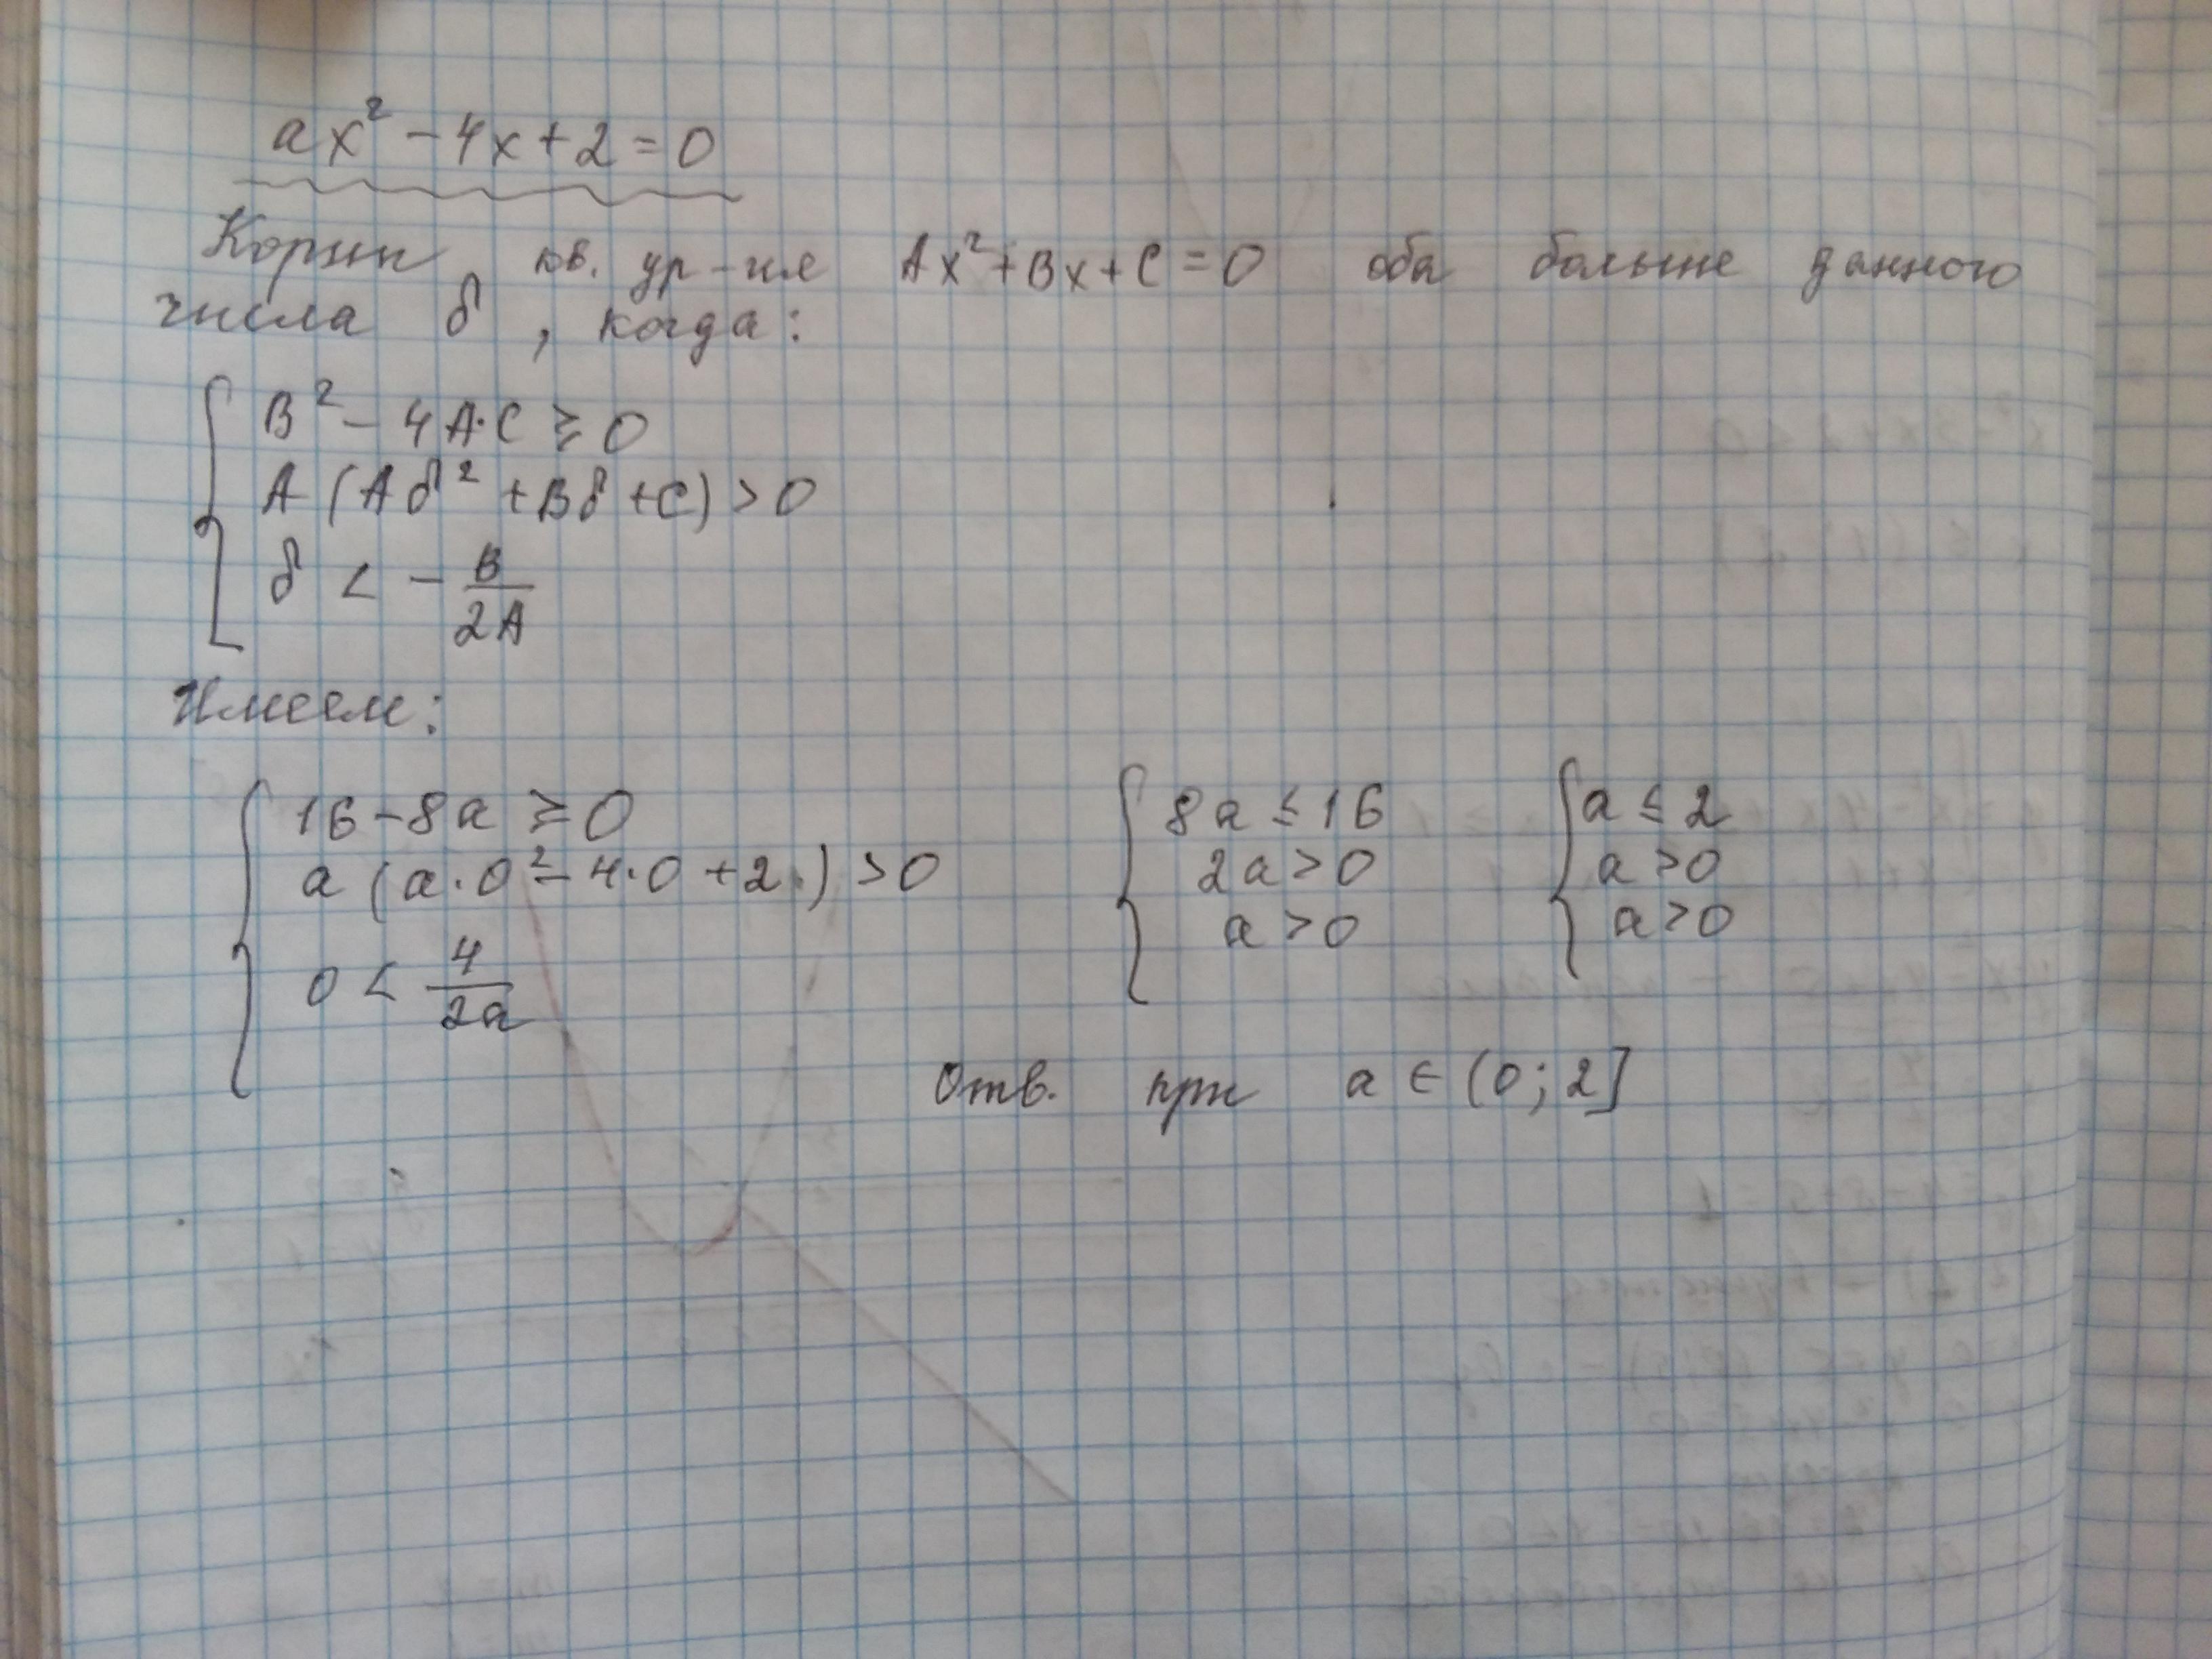 ax² - 4x + 2 = 0
Корни кв. ур-ия Ax² + Bx + C = 0 оба больше данного
числа δ, когда:
B² - 4A·C ≥ 0
A (Aδ² + Bδ + C) > 0
δ < - B/2A
Имеем:
16 - 8a ≥ 0 8a ≤ 16 a ≤ 2
a (a·0² - 4·0 + 2) > 0 2a > 0 a > 0
0 < 4/2a a > 0 a > 0
Отв. при a ∈ (0; 2]